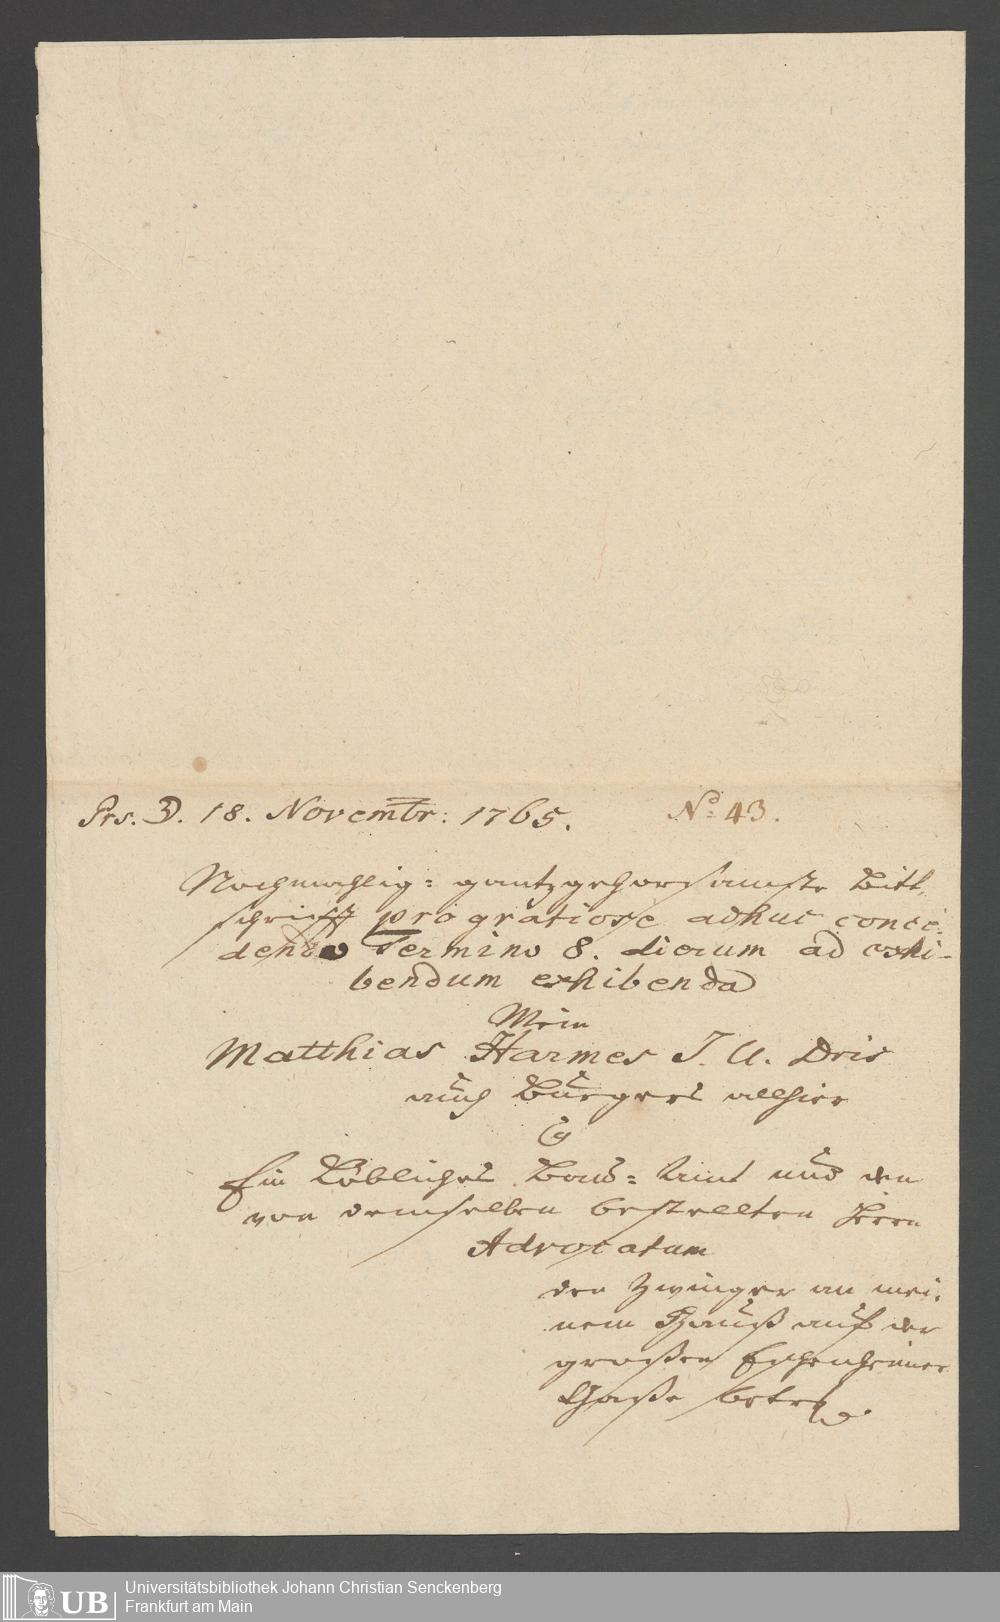 Prs. D. 18. Novembr: 1765. No: 43.
Nochmahlig= gantzgehorsamste Bitt,
schrifft pro gratiose adhuc conce=
dendo Termino 8. dierum ad exhi-
bendum exhibenda
Mein
Matthias Harmes J. U. Dris
auch Burgers allhier
Ca
Ein Löbliches Bau= Amt und den
von demselben bestellten Herrn
Advocatum
den Zwinger an mei,
nem Hauß auf der
großen Eschenheimer
Gaße betr.
UB Universitätsbibliothek Johann Christian Senckenberg
Frankfurt am Main